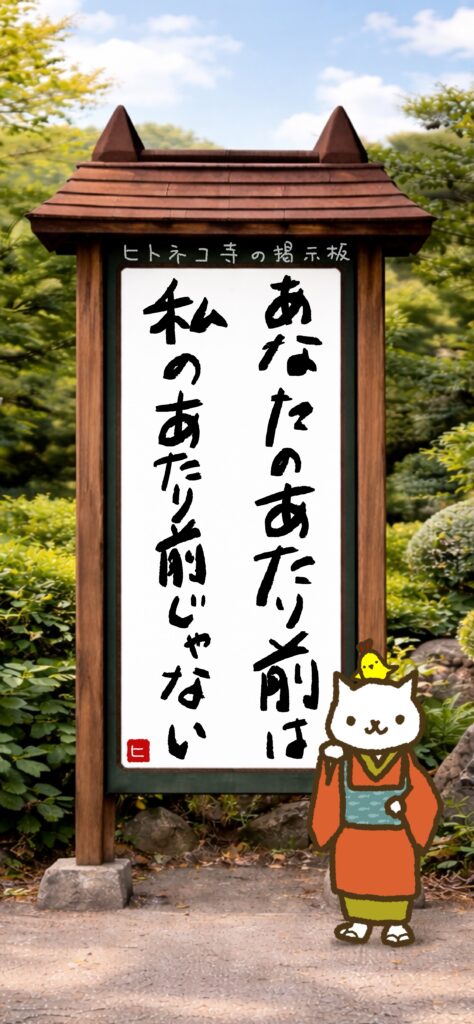 ヒトネコ寺の掲示板
あなたのあたり前は
私のあたり前じゃない
ヒ